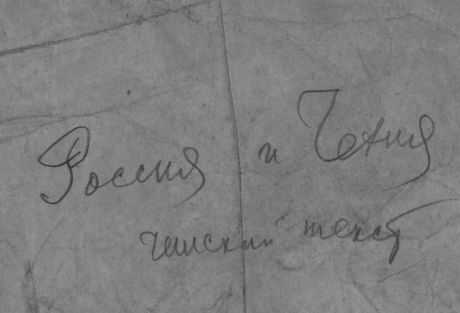 Россия и Чехия
чешский текст